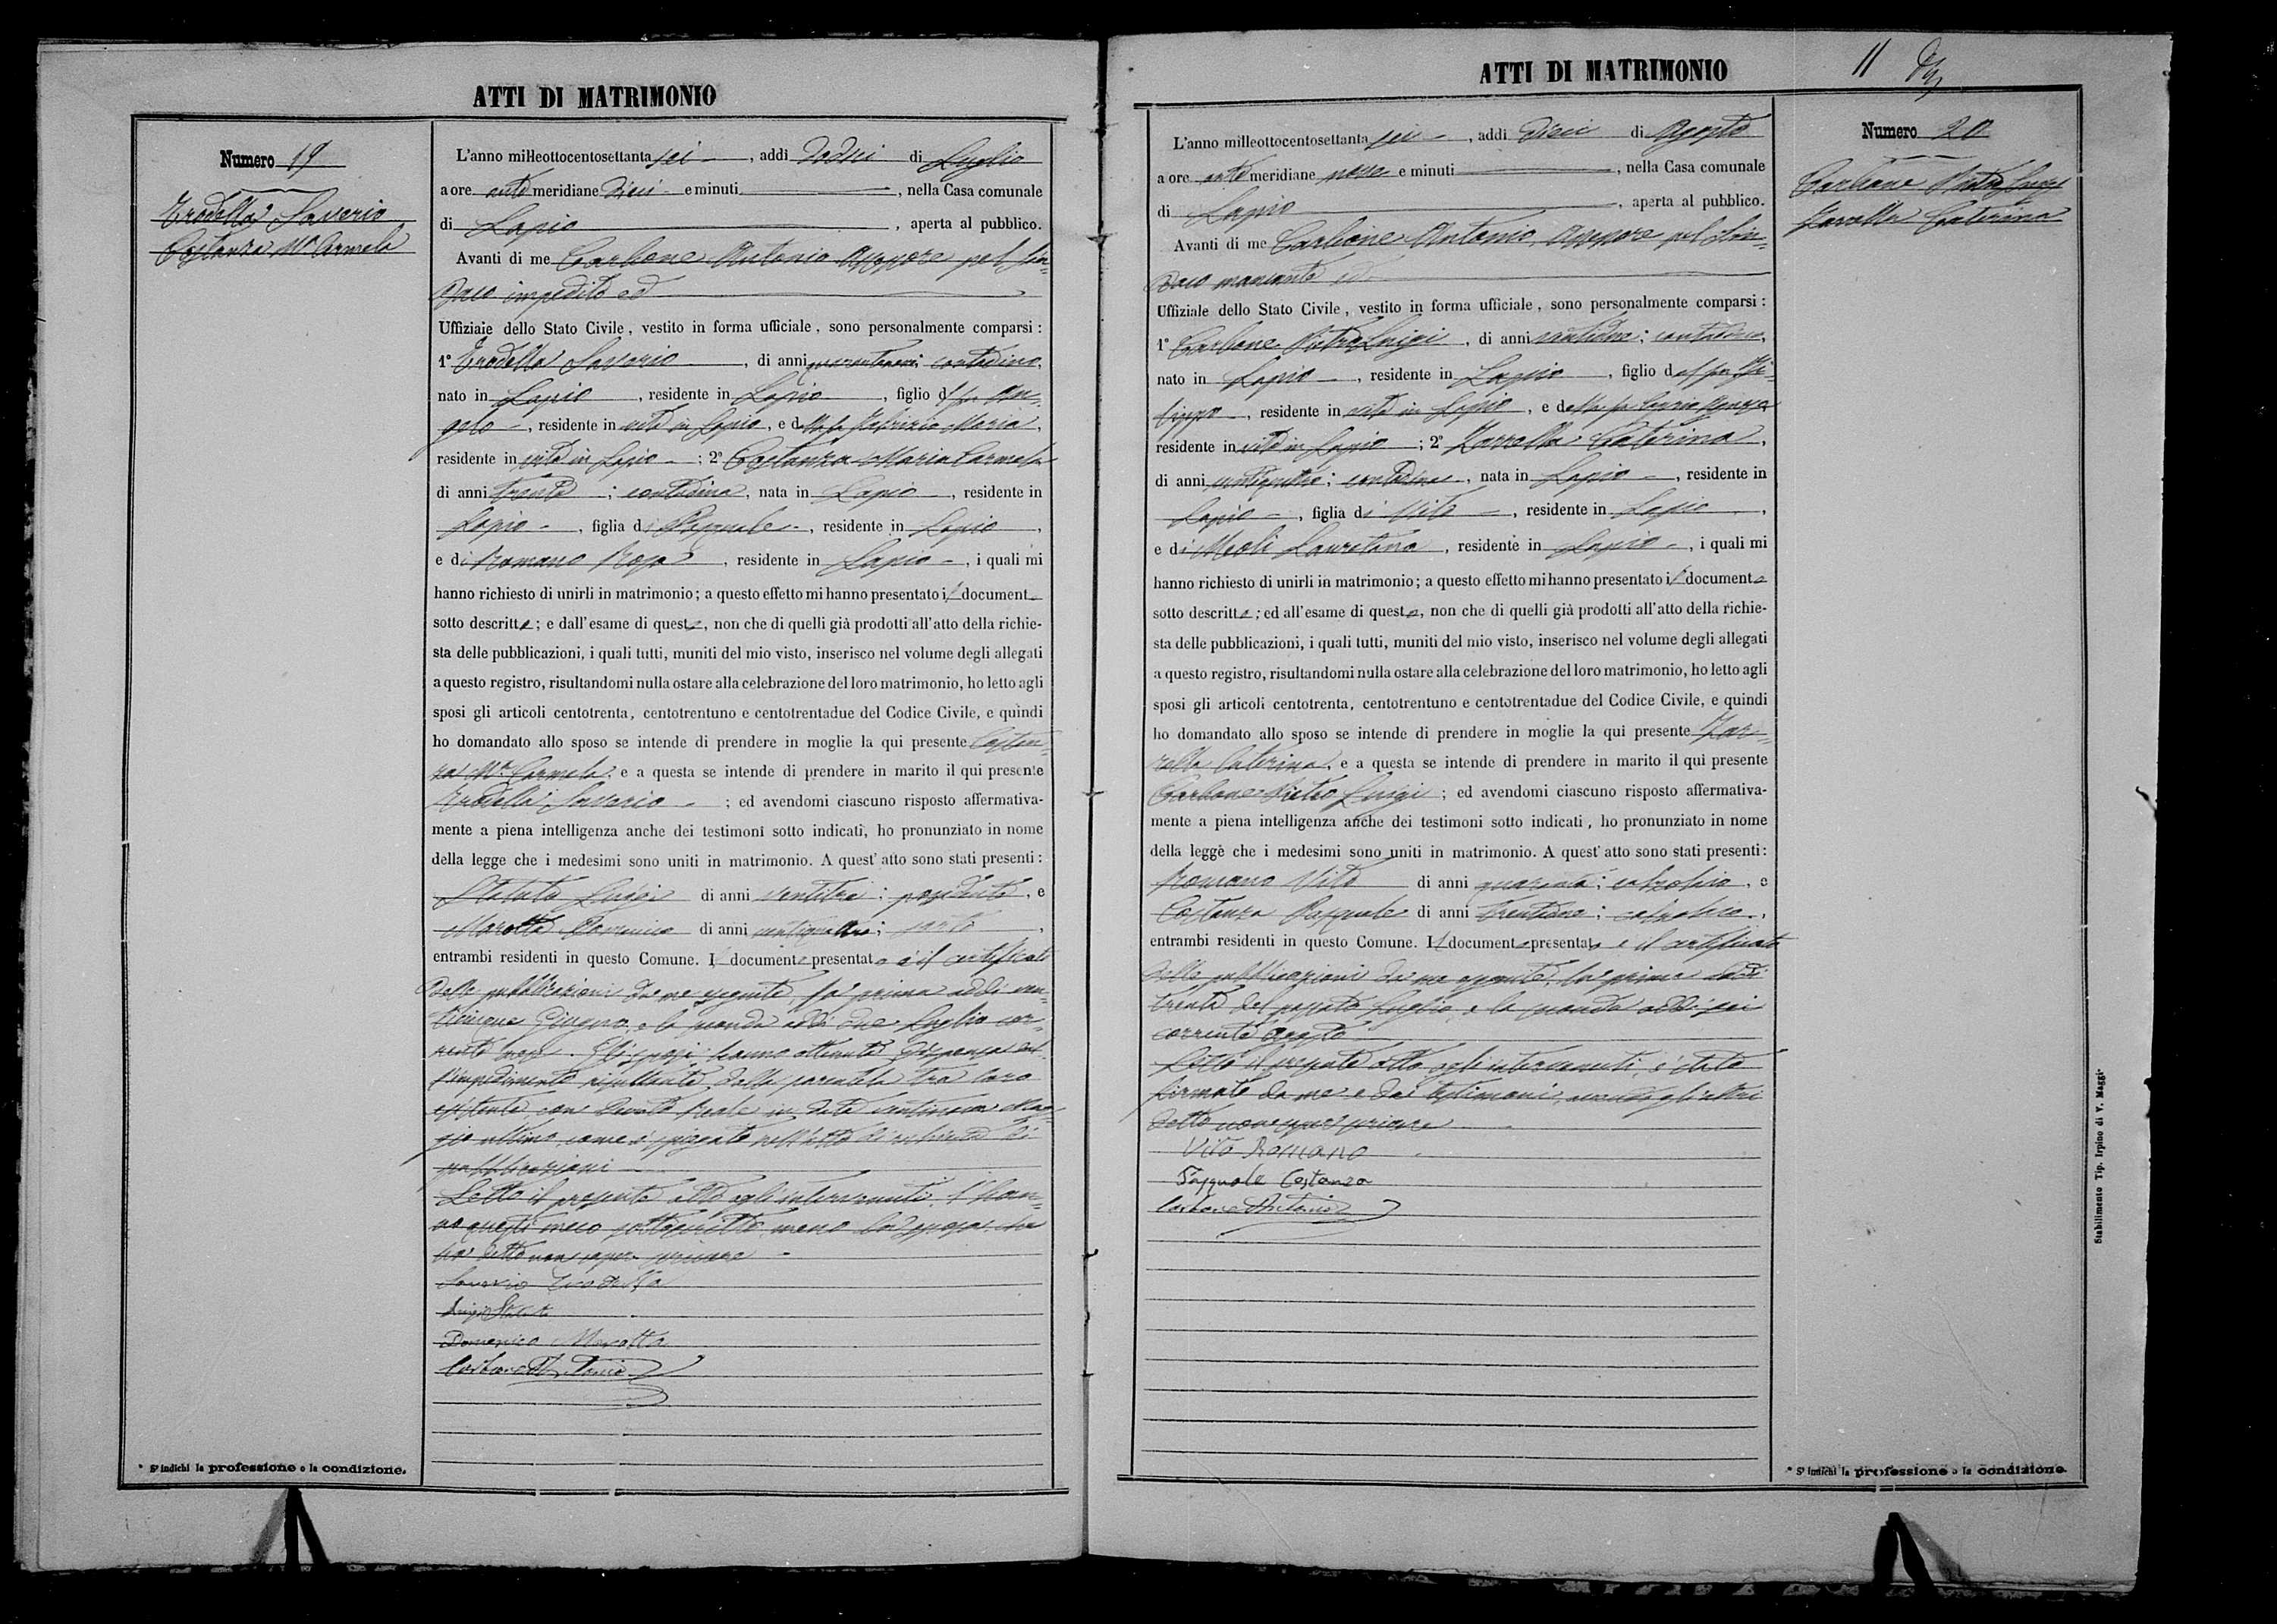 ATTI DI MATRIMONIO
Numero 19
Trodella Saverio
Costanza Mª Carmela
L'anno milleottocentosettanta sei, addì dodici di Luglio
a ore anti meridiane dieci e minuti, nella Casa comunale
di Lapio, aperta al pubblico.
Avanti di me Carbone Antonio Assessore pel Sin-
daco impedito ed
Uffiziale dello Stato Civile, vestito in forma ufficiale, sono personalmente comparsi:
1° Trodella Saverio, di anni; contadino,
nato in Lapio, residente in Lapio, figlio del fu An-
gelo, residente in vita in Lapio, e della fu Fabrizio Maria,
residente in vita in Lapio; 2° Costanza Maria Carmela
di anni trenta; contadina, nata in Lapio, residente in
Lapio, figlia di Pasquale, residente in Lapio,
e di Romano Rosa, residente in Lapio, i quali mi
hanno richiesto di unirli in matrimonio; a questo effetto mi hanno presentato il documento
sotto descritto; e dall'esame di questo, non che di quelli già prodotti all'atto della richie-
sta delle pubblicazioni, i quali tutti, muniti del mio visto, inserisco nel volume degli allegati
a questo registro, risultandomi nulla ostare alla celebrazione del loro matrimonio, ho letto agli
sposi gli articoli centotrenta, centotrentuno e centotrentadue del Codice Civile, e quindi
ho domandato allo sposo se intende di prendere in moglie la qui presente Costan-
za Mª Carmela, e a questa se intende di prendere in marito il qui presente
Trodella Saverio; ed avendomi ciascuno risposto affermativa-
mente a piena intelligenza anche dei testimoni sotto indicati, ho pronunziato in nome
della legge che i medesimi sono uniti in matrimonio. A quest' atto sono stati presenti:
Statuto Luigi di anni ventitre; possidente, e
Marotta Domenico di anni ventiquattro; sarto,
entrambi residenti in questo Comune. Il documento presentato è il certificato
delle pubblicazioni da me eseguite, la prima addì ven-
ticinque Giugno, e la seconda addì due Luglio cor-
rente mese. Gli sposi hanno ottenuto dispensa dal-
l'impedimento risultante dalla parentela tra loro
esistente con Decreto Reale in data ventinove Mag-
gio ultimo come è spiegato nell'atto di richiesta di
pubblicazioni
Letto il presente atto agli intervenuti, l'han-
no questi meco sottoscritto, meno la sposa che
ha detto non saper scrivere
Saverio Trodella
Luigi Statuto
Domenico Marotta
Carbone Antonio
* Si indichi la professione o la condizione.
ATTI DI MATRIMONIO
11
Numero 20
Carbone Pietro Luigi
Zarrella Caterina
L'anno milleottocentosettanta sei, addì dieci di Agosto
a ore anti meridiane nove e minuti, nella Casa comunale
di Lapio, aperta al pubblico.
Avanti di me Carbone Antonio, Assessore pel Sin-
daco mancante ed
Uffiziale dello Stato Civile, vestito in forma ufficiale, sono personalmente comparsi:
1° Carbone Pietro Luigi, di anni ventidue; contadino,
nato in Lapio, residente in Lapio, figlio del fu Fi-
lippo, residente in vita in Lapio, e della fu,
residente in vita in Lapio; 2° Zarrella Caterina,
di anni ventiquattro; contadina, nata in Lapio, residente in
Lapio, figlia di Vito, residente in Lapio,
e di Meoli Lauretana, residente in Lapio, i quali mi
hanno richiesto di unirli in matrimonio; a questo effetto mi hanno presentato il documento
sotto descritto; ed all'esame di questo, non che di quelli già prodotti all'atto della richie-
sta delle pubblicazioni, i quali tutti, muniti del mio visto, inserisco nel volume degli allegati
a questo registro, risultandomi nulla ostare alla celebrazione del loro matrimonio, ho letto agli
sposi gli articoli centotrenta, centotrentuno e centotrentadue del Codice Civile, e quindi
ho domandato allo sposo se intende di prendere in moglie la qui presente Zar-
rella Caterina, e a questa se intende di prendere in marito il qui presente
Carbone Pietro Luigi; ed avendomi ciascuno risposto affermativa-
mente a piena intelligenza anche dei testimoni sotto indicati, ho pronunziato in nome
della legge che i medesimi sono uniti in matrimonio. A quest' atto sono stati presenti:
Romano Vito di anni quaranta; calzolaio, e
Costanza Pasquale di anni trentadue; calzolaio,
entrambi residenti in questo Comune. Il documento presentato è il certificato
delle pubblicazioni da me eseguite, la prima addì
trenta del passato Luglio, e la seconda addì sei
corrente Agosto
Letto il presente atto agli intervenuti, è stato
firmato da me e dai testimoni, avendo gli altri
detto non saper scrivere
Vito Romano
Pasquale Costanza
Carbone Antonio
* Si indichi la professione o la condizione.
Stabilimento Tip. Irpino di V. Maggi